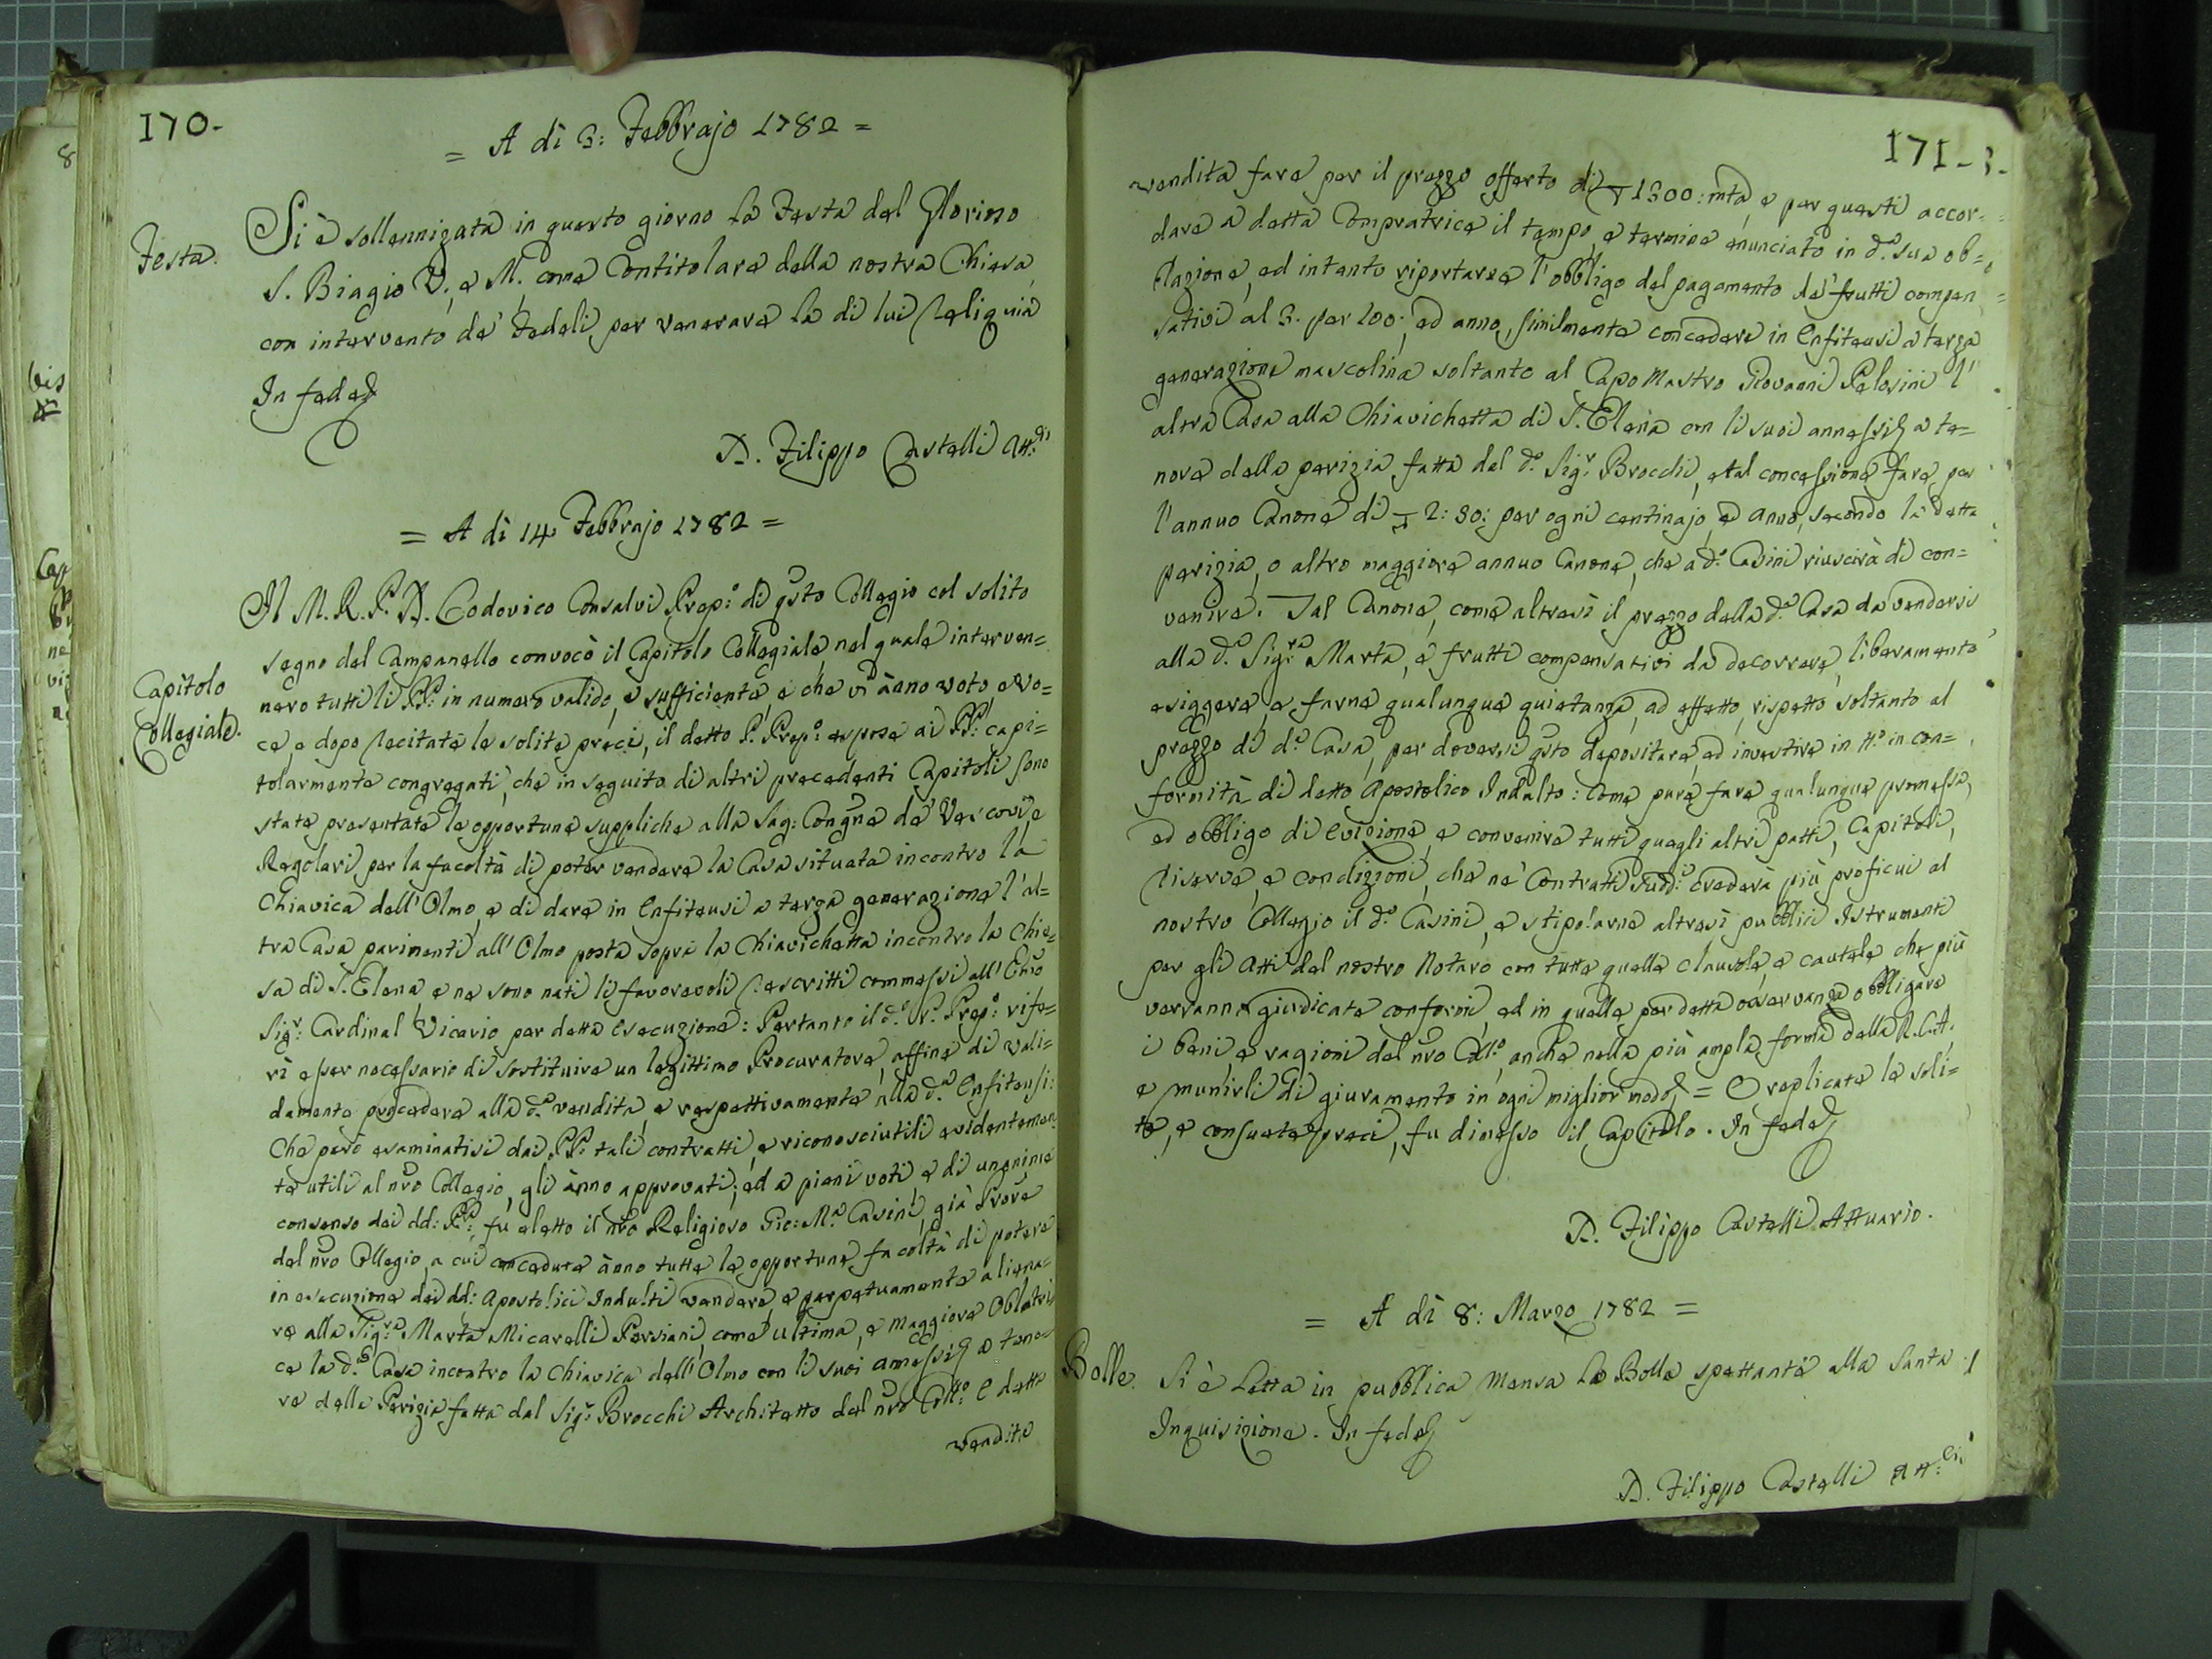 170.
= A dì 3: Febbrajo 1782 =
Festa.
Si è sollennizata in questo giorno la Festa del Glorioso
S. Biagio V., e M. come Contitolare della nostra Chiesa,
con intervento de' Fedeli per venerare la di lui Reliquia
In fede
D. Filippo Castelli Att.rio
= A dì 14 Febbrajo 1782 =
Capitolo
Collegiale.
Il M. R. P. D. Lodovico Consalvi Prep:o di qsto Collegio col solito
segno del Campanello convocò il Capitolo Collegiale, nel quale interven=
nero tutti li PP: in numero valido, e sufficiente, e che vi ànno voto, e vo=
ce, e dopo recitate le solite preci, il detto P. Prep:o espose ai PP: capi=
tolarmente congregati, che in seguito di altri precedenti Capitoli sono
state presentate le opportune suppliche alla Sag: Congne de' Vescovi, e
Regolari per la facoltà di poter vendere la Casa situata incontro la
Chiavica dell'Olmo, e di dare in Enfiteusi a terza generazione l'al=
tra Casa parimenti all'Olmo posta sopra la Chiavichetta incontro la Chie=
sa di S. Elena e ne sono nati li favorevoli Rescritti commessi all'Emo
Sigr: Cardinal Vicario per detta esecuzione: Pertanto il d.o P. Prep:o rife=
rì esser necessario di sostituire un legittimo Procuratore, affine di vali=
damente procedere alla d.a vendita, e respettivamente alla d.a Enfiteusi:
Che però esaminatisi dai PP: tali contratti, e riconosciutili evidentemen=
te utili al nro Collegio, gli ànno approvati; ed a pieni voti, e di unanime
consenso dei dd: PP:, fu eletto il nro Religioso Gio: M.a Casini, già Prove
del nro Collegio, a cui concedute ànno tutte le opportune facoltà di potere
in esecuzione dei dd: Apostolici Indulti vendere, e perpetuamente aliena=
re alla Sig:ra Marta Micarelli Persiani, come ultima, e maggiore Oblatri
ce la d.a Casa incontro la Chiavica dell'Olmo con li suoi annessi a teno=
re della Perizia fatta dal Sigr: Brocchi Architetto del nro Coll:o e detta
vendita
171-
vendita fare per il prezzo offerto di 1300: mta, e per questi accor=
dare a detta Compratrice il tempo, e termine enunciato in d.a sua ob=
lazione, ed intanto riportarne l'obbligo del pagamento de' frutti compen=
sativi al 3. per 100; ed anno, similmente concedere in Enfiteusi a terza
generazione mascolina soltanto al Capo Mastro Giovanni Pelosini l'
altra Casa alla Chiavichetta di S. Elena con li suoi annessi a te=
nore della perizia fatta dal d.o Sigr: Brocchi, e tal concessione fare per
l'annuo Canone di 2: 30: per ogni centinajo, ed anno, secondo la detta
perizia, o altro maggiore annuo Canone, che a d.o Casini riuscirà di con=
venire. Tal Canone, come altresì il prezzo della d.a Casa da vendersi
alla d.a Sig:ra Marta, e frutti compensativi da decorrere, liberamente
esiggere, e farne qualunque quietanza, ad effetto, rispetto soltanto al
prezzo di d.a Casa, per doversi qsto depositare, ed investire in in con=
formità di detto Apostolico Indulto: Come pure fare qualunque promessa,
ed obbligo di evizione, e convenire tutti quegli altri patti, Capitoli,
riserve, e condizioni, che ne' Contratti sudd:i crederà più proficui al
nostro Collegio il d.o Casini, e stipolarne altresì pubblici Istrumenti
per gli Atti del nostro Notaro con tutte quelle clausole, e cautele che più
verranno giudicate conformi, ed in quelle per detta osservanza obbligare
i beni e ragioni del nro Coll.o, anche nella più ampla forma della R.C.A.
e munirli di giuramento in ogni miglior modo, = E replicate le soli=
te, e consuete preci, fu dimesso il Capitolo. In fede
D. Filippo Castelli Attuario.
= A dì 8: Marzo 1782 =
Bolle.
Si è Letta in pubblica Mensa la Bolla spettante alla Santa
Inquisizione. In fede
D. Filippo Castelli Att:rio